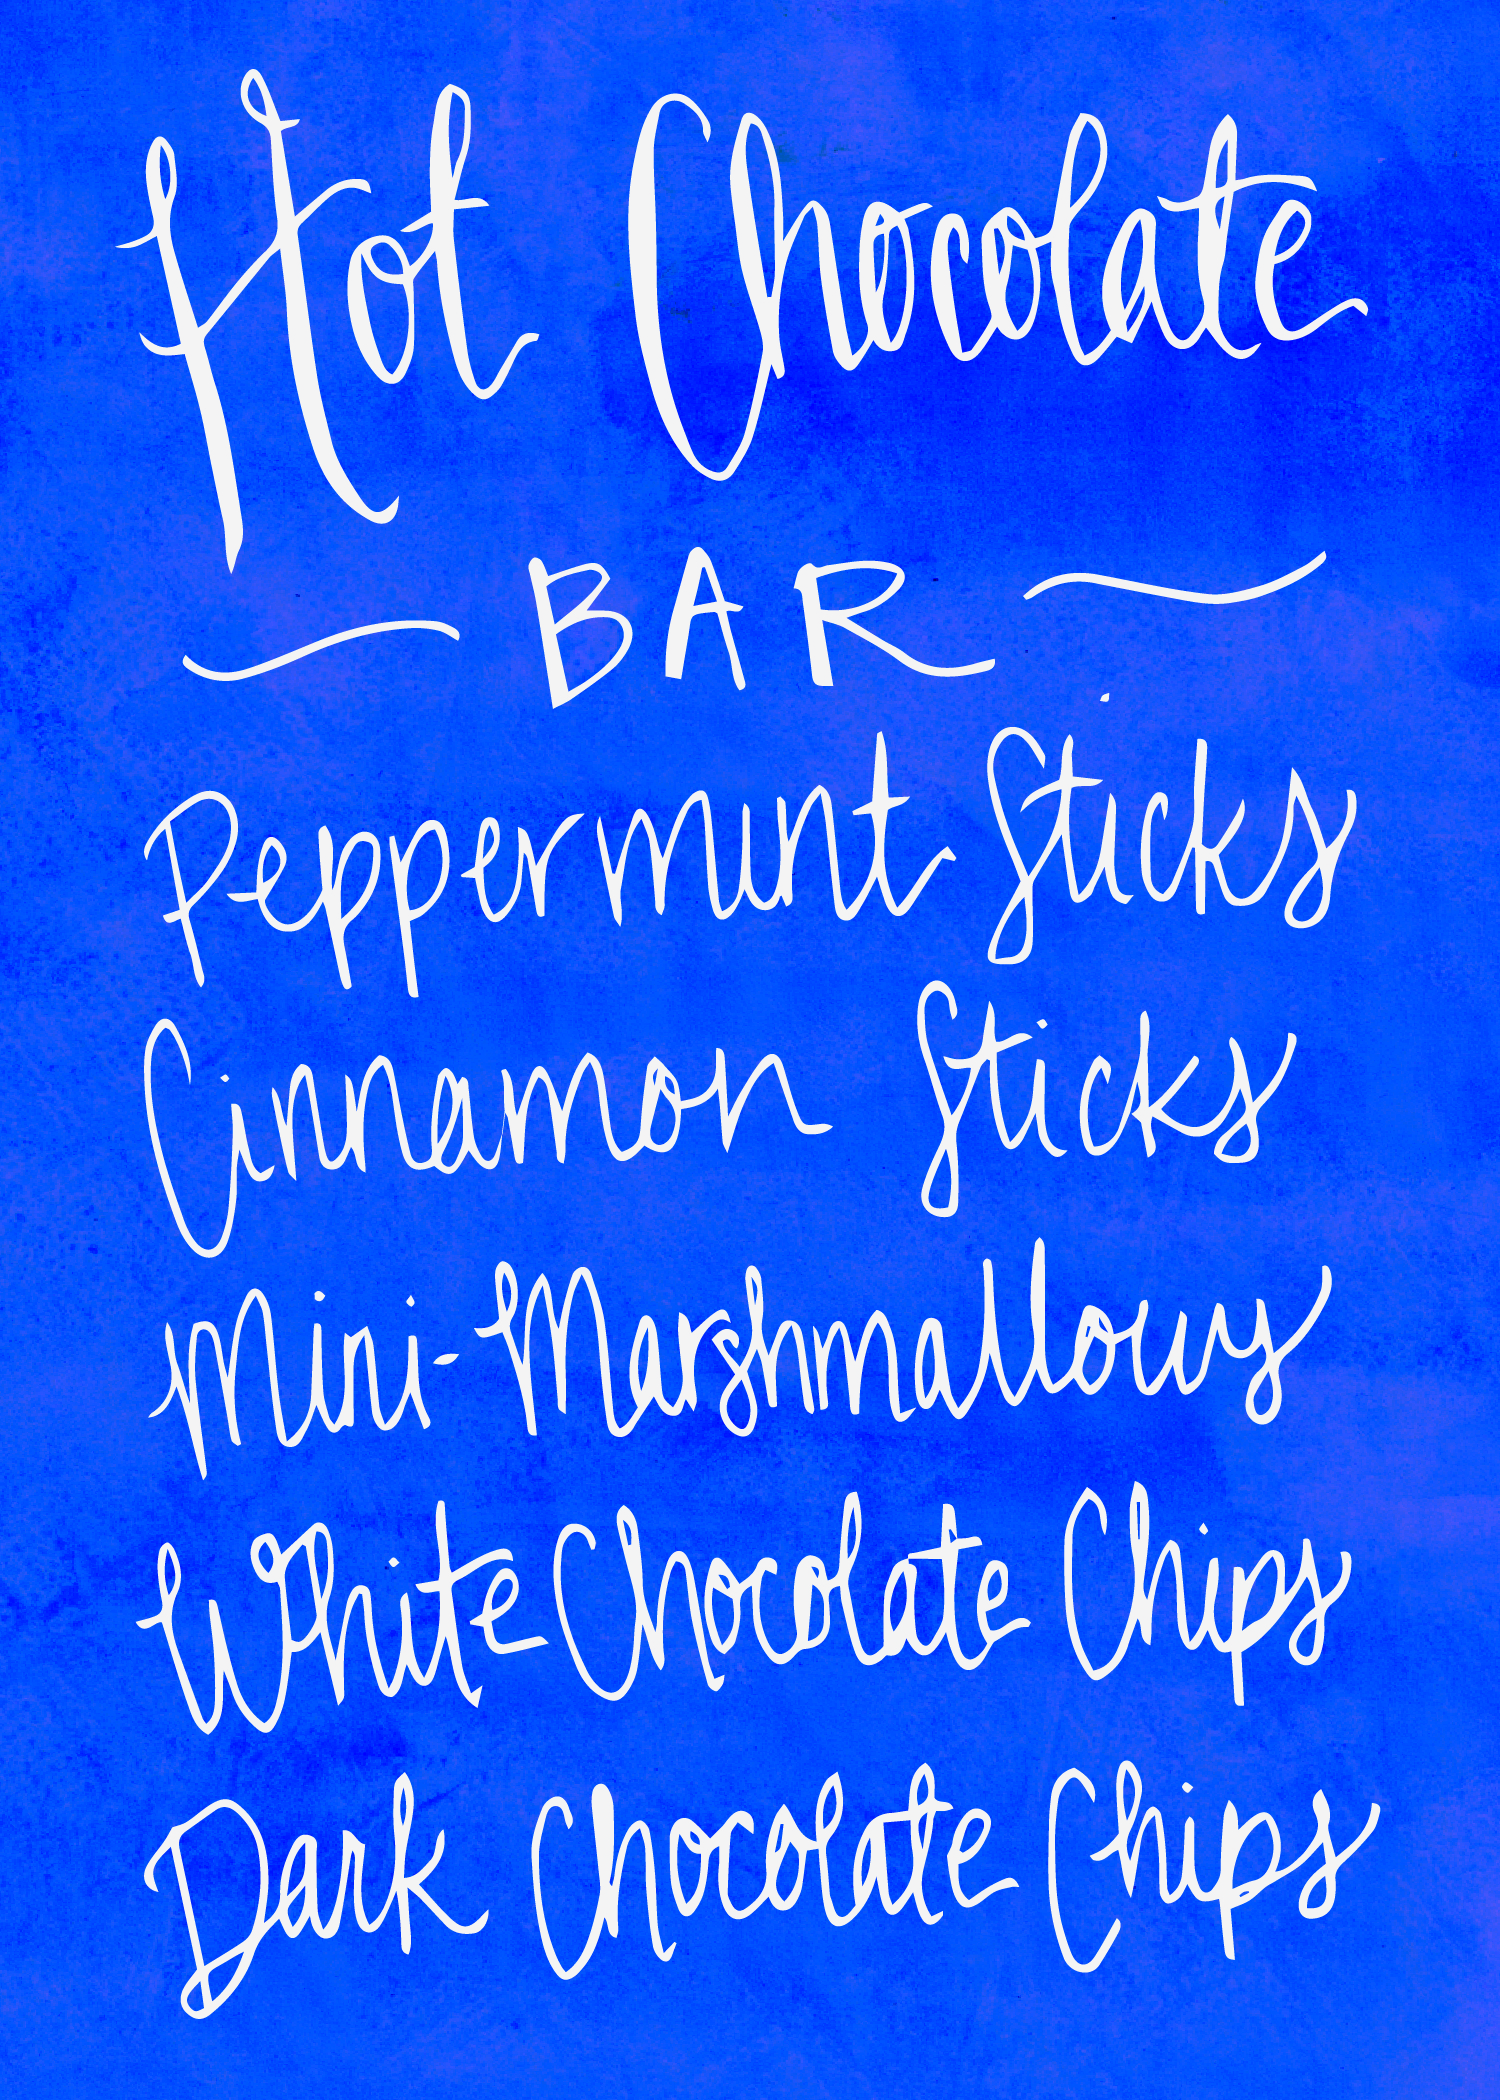 Hot Chocolate
BAR
Peppermint Sticks
Cinnamon Sticks
Mini-Marshmallows
White Chocolate Chips
Dark Chocolate Chips